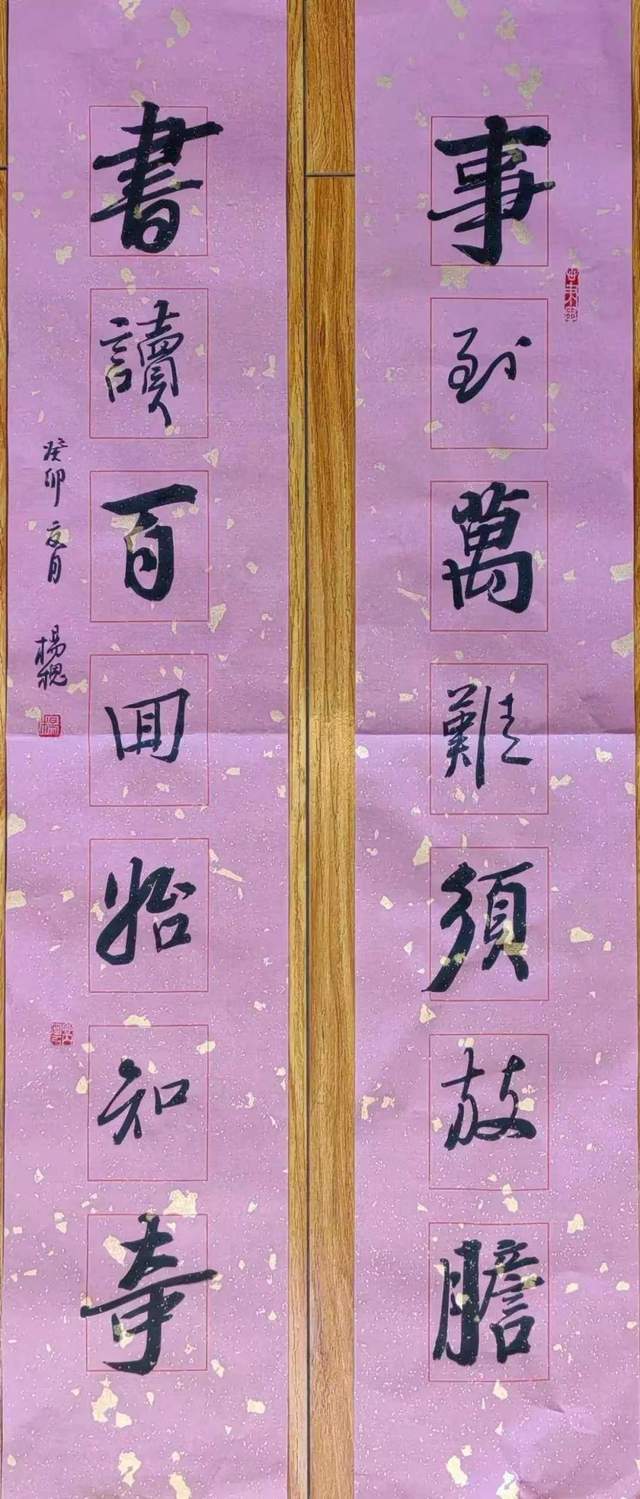 事到萬難須放膽
書讀百回始知奇
癸卯夏月
楊聰